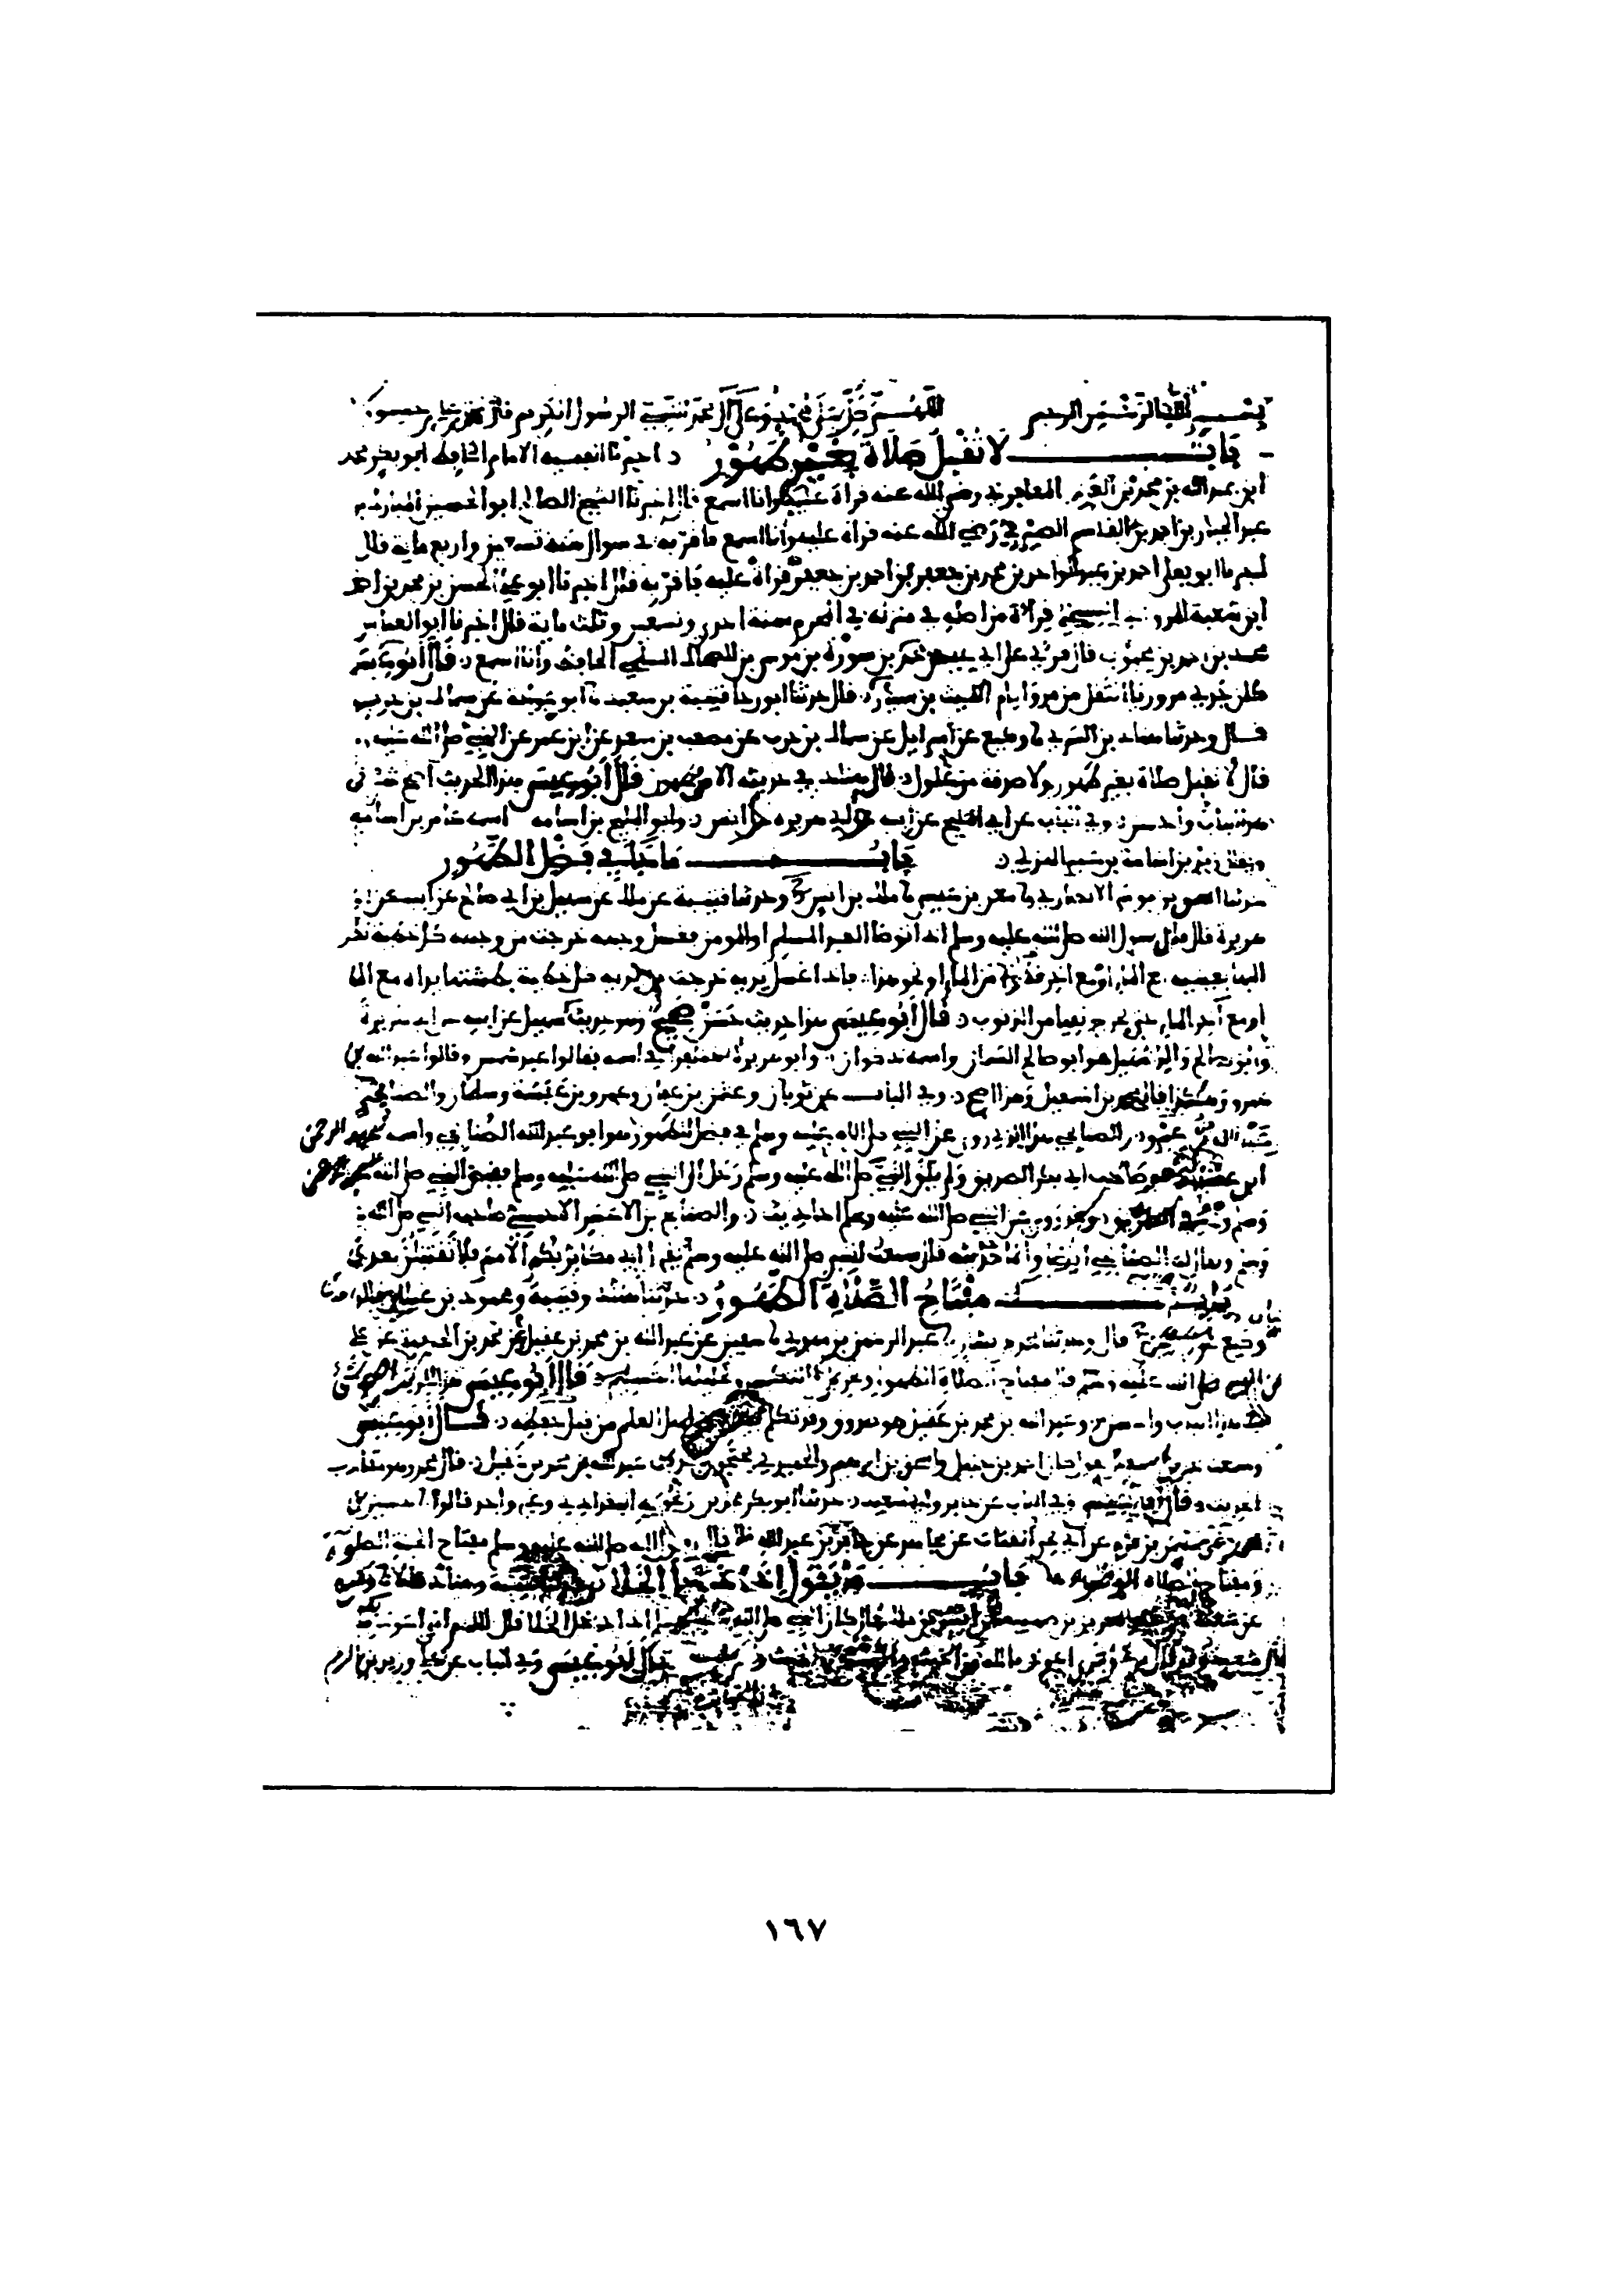 بسم الله الرحمن الرحيم اللهم صل على محمد وعلى آل محمد الرسول الكريم
باب لا تقبل صلاة بغير طهور اخبرنا الفقيه الامام الحافظ ابو بكر محمد
ابن عبد الله بن محمد بن العربي المعافري رضي الله عنه قراة عليه وانا اسمع قال اخبرنا الشيخ الصالح ابو الحسين المبارك بن
عبد الجبار بن احمد بن القاسم الصيرفي رضي الله عنه قراة عليه وانا اسمع فاقر به في شوال سنة تسعين واربع ماية قال
اخبرنا ابو يعلى احمد بن عبد الواحد بن محمد بن جعفر بن احمد بن جعفر قراة عليه فاقر به قال اخبرنا ابو علي الحسن بن محمد بن احمد
ابن شعبة المروزي السنجي قراة من اصله في منزله في المحرم سنة احدى وتسعين وثلث ماية قال اخبرنا ابو العباس
محمد بن احمد بن محبوب قال قري على ابي عيسى محمد بن سورة بن موسى بن الضحاك السلمي الحافظ وانا اسمع قال ابو عيسى
كان جدي مروزيا انتقل من مرو ايام الليث بن سيار قال حدثنا ابو رجا قتيبة بن سعيد نا ابو عوانة عن سماك بن حرب
قال وحدثنا هناد بن السري نا وكيع عن اسرايل عن سماك بن حرب عن مصعب بن سعد عن ابن عمر عن النبي صلى الله عليه
قال لا تقبل صلاة بغير طهور ولا صدقة من غلول قال هناد في حديثه الا بطهور قال ابو عيسى هذا الحديث اصح شي في
هذا الباب واحسن وفي الباب عن ابي المليح عن ابيه وابي هريرة وانس وابو المليح بن اسامة اسمه عامر بن اسامة
ويقال زيد بن اسامة بن عمير الهذلي باب ما جا في فضل الطهور
حدثنا اسحق بن موسى الانصاري نا معن بن عيسى نا ملك بن انس ح وحدثنا قتيبة عن ملك عن سهيل بن ابي صالح عن ابيه عن ابي
هريرة قال قال رسول الله صلى الله عليه وسلم اذا توضا العبد المسلم او المومن فغسل وجهه خرجت من وجهه كل خطية نظر
اليها بعينيه مع الما او مع اخر قطر الما او نحو هذا واذا غسل يديه خرجت من يديه كل خطية بطشتها يداه مع الما
او مع آخر قطر الما حتى يخرج نقيا من الذنوب قال ابو عيسى هذا حديث حسن صحيح وهو حديث سهيل عن ابيه عن ابي هريرة
وابو صالح والد سهيل هو ابو صالح السمان واسمه ذكوان وابو هريرة اختلفوا في اسمه فقالوا عبد شمس وقالوا عبد الله بن
عمرو وهكذا قال محمد بن اسمعيل وهذا اصح وفي الباب عن ثوبان وعثمن بن عفان وعمرو بن عبسة وسلمان والصنابحي
والصنابحي هذا الذي روى عن النبي صلى الله عليه وسلم في فضل الطهور هو ابو عبد الله الصنابحي واسمه عبد الرحمن
صاحب ابي بكر الصديق ولم يلق النبي صلى الله عليه وسلم رحل الى النبي صلى الله عليه وسلم فقبض النبي صلى الله عليه
وسلم وهو في الطريق وقد روى عن النبي صلى الله عليه وسلم احاديث والصنابح بن الاعسر الاحمسي صاحب النبي صلى الله عليه
وسلم يقال له الصنابحي ايضا وانما حديثه قال سمعت النبي صلى الله عليه وسلم يقول اني مكاثر بكم الامم فلا تقتتلن بعدي
باب مفتاح الصلاة الطهور حدثنا هناد وقتيبة ومحمود بن غيلان قالوا حدثنا
وكيع عن سفين ح قال وحدثنا محمد بن بشار نا عبد الرحمن بن مهدي نا سفين عن عبد الله بن محمد بن عقيل عن محمد بن الحنفية عن علي
عن النبي صلى الله عليه وسلم قال مفتاح الصلاة الطهور وتحريمها التكبير وتحليلها التسليم قال ابو عيسى هذا الحديث اصح شي
في هذا الباب واحسن وعبد الله بن محمد بن عقيل هو صدوق وقد تكلم فيه بعض اهل العلم من قبل حفظه قال ابو عيسى
وسمعت محمد بن اسمعيل يقول كان احمد بن حنبل واسحق بن ابرهيم والحميدي يحتجون بحديث عبد الله بن محمد بن عقيل قال محمد وهو مقارب
الحديث قال ابو عيسى وفي الباب عن جابر وابي سعيد حدثنا ابو بكر محمد بن زنجويه البغدادي وغير واحد قالوا نا حسين بن
محمد نا سليمن بن قرم عن ابي يحيى القتات عن مجاهد عن جابر بن عبد الله قال قال رسول الله صلى الله عليه وسلم مفتاح الجنة الصلوة
ومفتاح الصلاة الوضوء باب ما يقول اذا دخل الخلا حدثنا قتيبة وهناد قالا نا وكيع
عن شعبة عن عبد العزيز بن صهيب عن انس بن ملك قال كان النبي صلى الله عليه وسلم اذا دخل الخلا قال اللهم اني اعوذ بك
قال شعبة وقد قال مرة اخرى اعوذ بالله من الخبث قال ابو عيسى وفي الباب عن علي وزيد بن ارقم
١٦٧